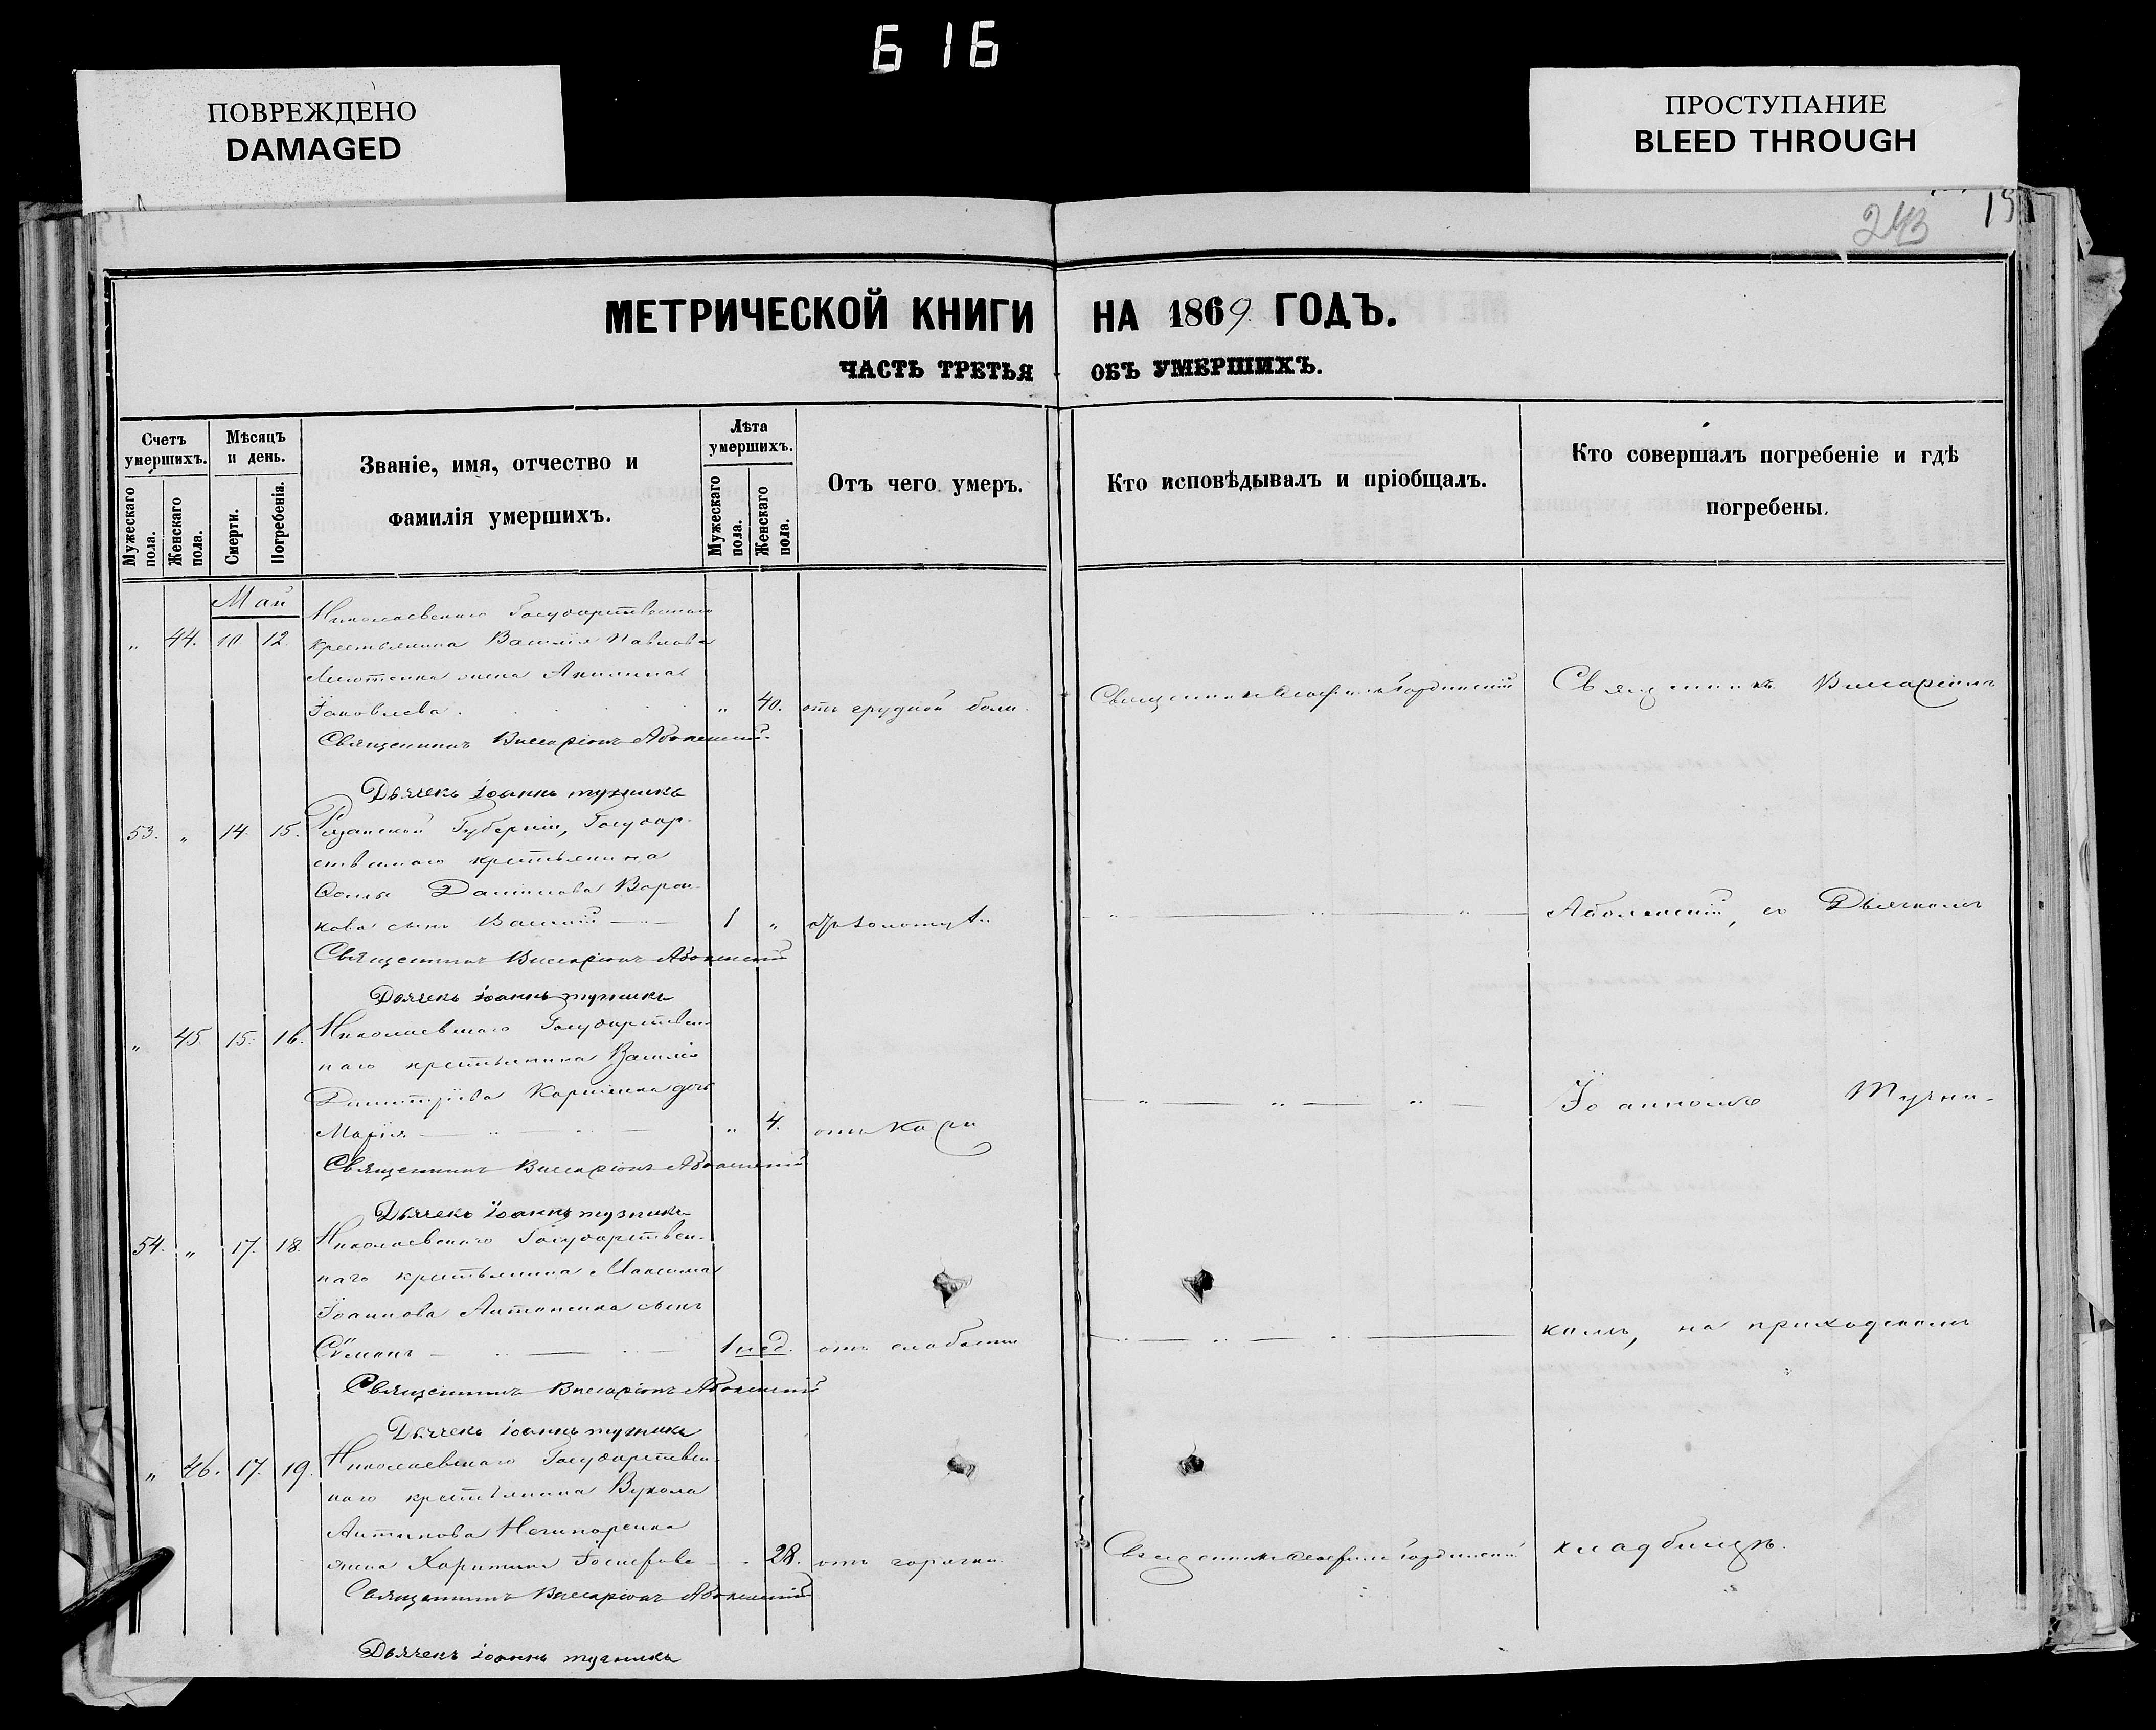 616
ПОВРЕЖДЕНО
DAMAGED
ПРОСТУПАНИЕ
BLEED THROUGH
243
МЕТРИЧЕСКОЙ КНИГИ НА 1869 ГОДЪ.
ЧАСТЬ ТРЕТЬЯ ОБЪ УМЕРШИХЪ.
Счетъ умершихъ.
Мужескаго пола.
Женскаго пола.
Мѣсяцъ и день.
Смерти.
Погребенія.
Званіе, имя, отчество и
фамилія умершихъ.
Лѣта умершихъ.
Мужескаго пола.
Женскаго пола.
Отъ чего умеръ.
Кто исповѣдывалъ и пріобщалъ.
Кто совершалъ погребеніе и гдѣ
погребены.
Май
„ 44. 10. 12. Николаевскаго Государственнаго
крестьянина Василія Павлова
жена Акилина
Іаковлева. „ 40. отъ грудной боли. Священникъ Священникъ Виссаріонъ
Священникъ Виссаріонъ Аболенскій
Дьячекъ Іоаннъ Тучникъ
53. „ 14. 15. Рязанской Губерніи, Государ-
ственнаго крестьянина
Данилова Ворон-
кова сынъ Василій 1 „ отъ золотухи Аболенскій, съ Дьячкомъ
Священникъ Виссаріонъ Аболенскій
Дьячекъ Іоаннъ Тучникъ
„ 45. 15. 16. Николаевскаго Государствен-
наго крестьянина Василія
Димитріева дочь
Марія „ 4. отъ кори Іоанномъ Тучни-
Священникъ Виссаріонъ Аболенскій
Дьячекъ Іоаннъ Тучникъ
54. „ 17. 18. Николаевскаго Государствен-
наго крестьянина Максима
Іоаннова Антоненка сынъ
Сѵмонъ 1 нед. отъ слабости комъ, на приходскомъ
Священникъ Виссаріонъ Аболенскій
Дьячекъ Іоаннъ Тучникъ
„ 46. 17. 19. Николаевскаго Государствен-
наго крестьянина Вукола
Антипова Нечипоренка
жена Харитина Іосифова 28. отъ горячки. Священникъ кладбищѣ.
Священникъ Виссаріонъ Аболенскій
Дьячекъ Іоаннъ Тучникъ